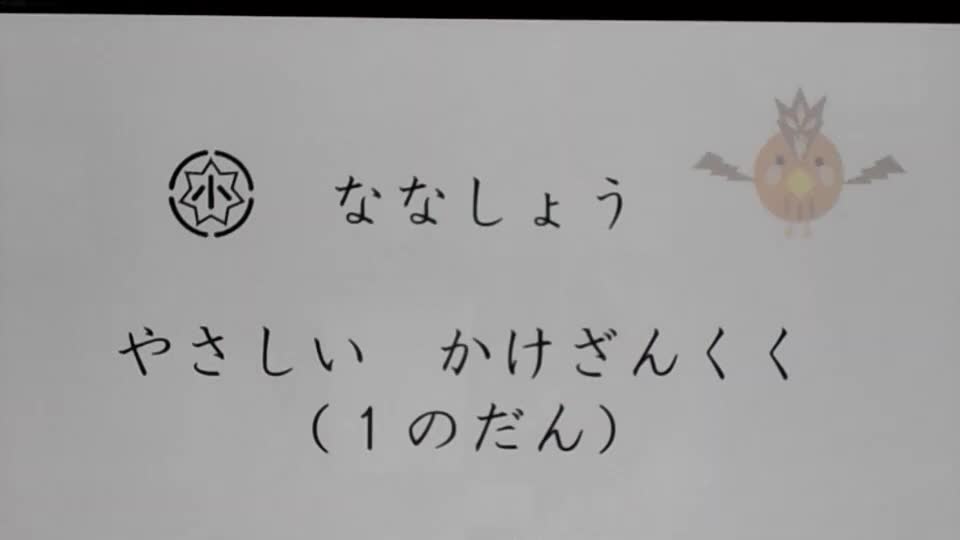 小 ななしょう
やさしい かけざんくく
(1のだん)